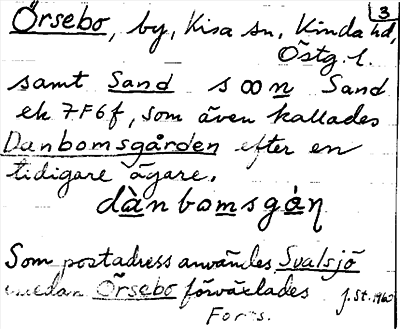 3
Örsebo, by, Kisa sn, Kinda hd,
Östg. l.
samt Sand s oo n Sand
ek 7F6f, som även kallades
Danbomsgården efter en
tidigare ägare.
dànbomsgàn̥
Som postadress användes Svalsjö
medan Örsebo förväxlades J. St. 1960
Forts.